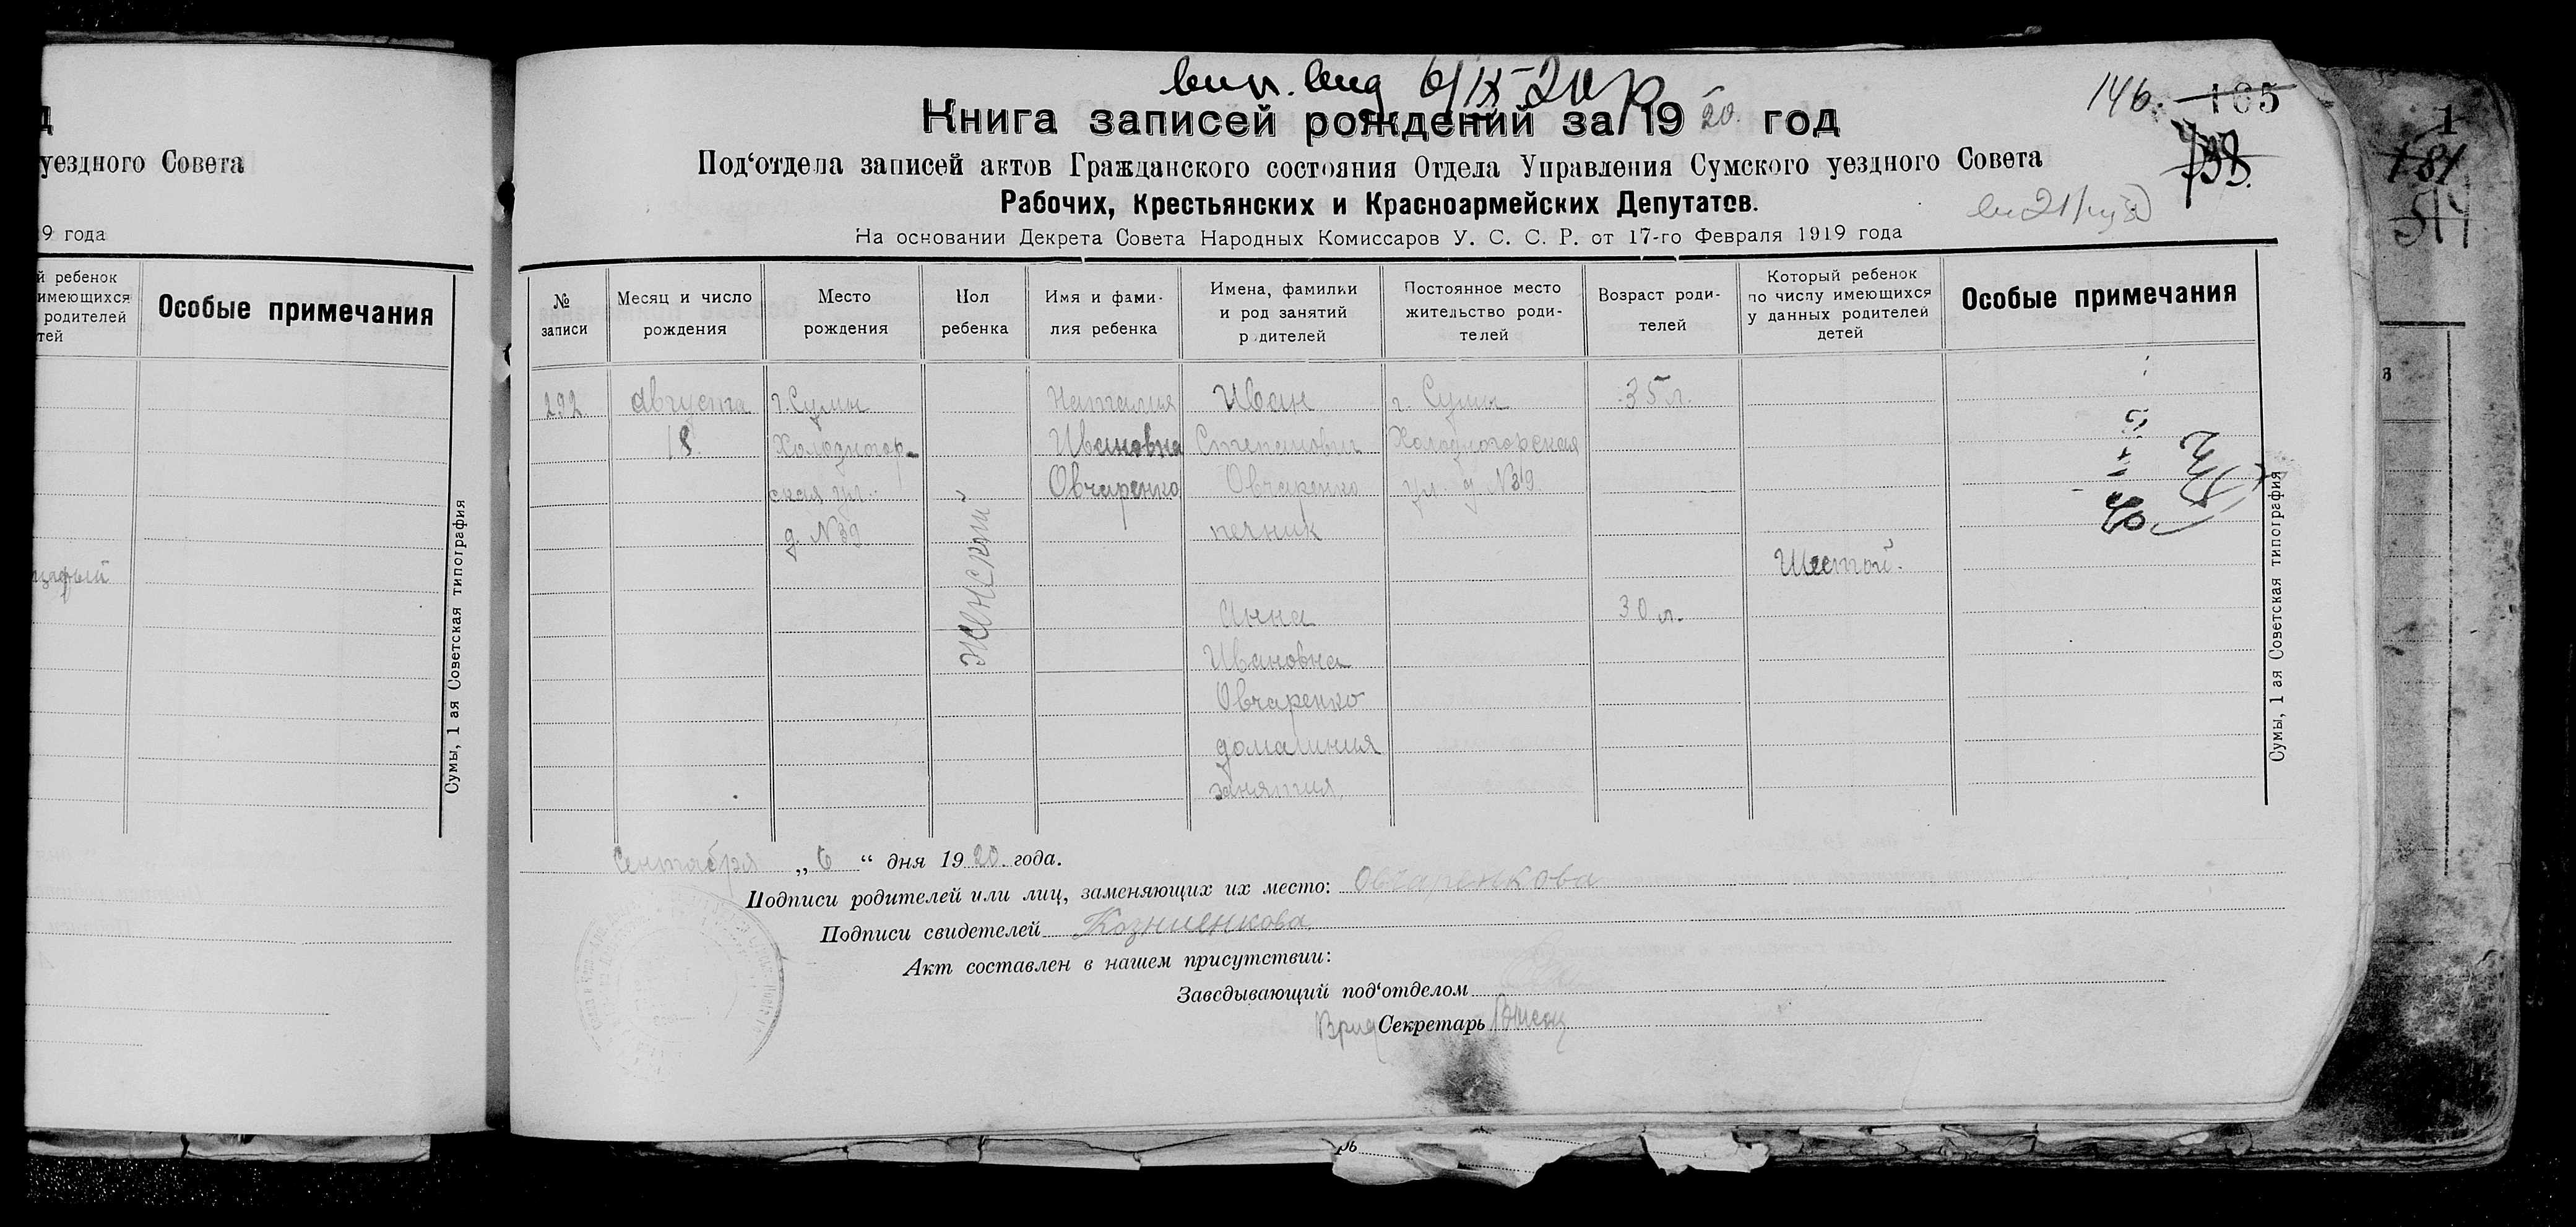 уездного Совета
9 года
й ребенок
имеющихся
родителей
тей
Особые примечания
Сумы, 1 ая Советская типография
6/IX-20
146. 105
Книга записей рождений за 1920. год
Под‘отдела записей актов Гражданского состояния Отдела Управления Сумского уездного Совета
Рабочих, Крестьянских и Красноармейских Депутатов.
На основании Декрета Совета Народных Комиссаров У. С. С. Р. от 17-го Февраля 1919 года
№
записи
Месяц и число
рождения
Место
рождения
Пол
ребенка
Имя и фами-
лия ребенка
Имена, фамилии
и род занятий
р дителей
Постоянное место
жительство роди-
телей
Возраст роди-
телей
Который ребенок
по числу имеющихся
у данных родителей
детей
Особые примечания
292
Августа
18.
г. Сумы
Холодногор-
ская ул.
д. №39
женский
Наталия
Ивановна
Овчаренко
Иван
Степанович
Овчаренко
печник
Анна
Ивановна
Овчаренко
домашния
занятия
г. Сумы
Холодногорская
ул. д №39
35 л.
30 л.
Шестой.
Сумы, 1 ая Советская типография
Сентября „ 6 “ дня 1920 года.
Подписи родителей или лиц, заменяющих их место: Овчаренкова
Подписи свидетелей
Акт составлен в нашем присутствии:
Заведывающий под‘отделом
Врид Секретарь
1
181
514